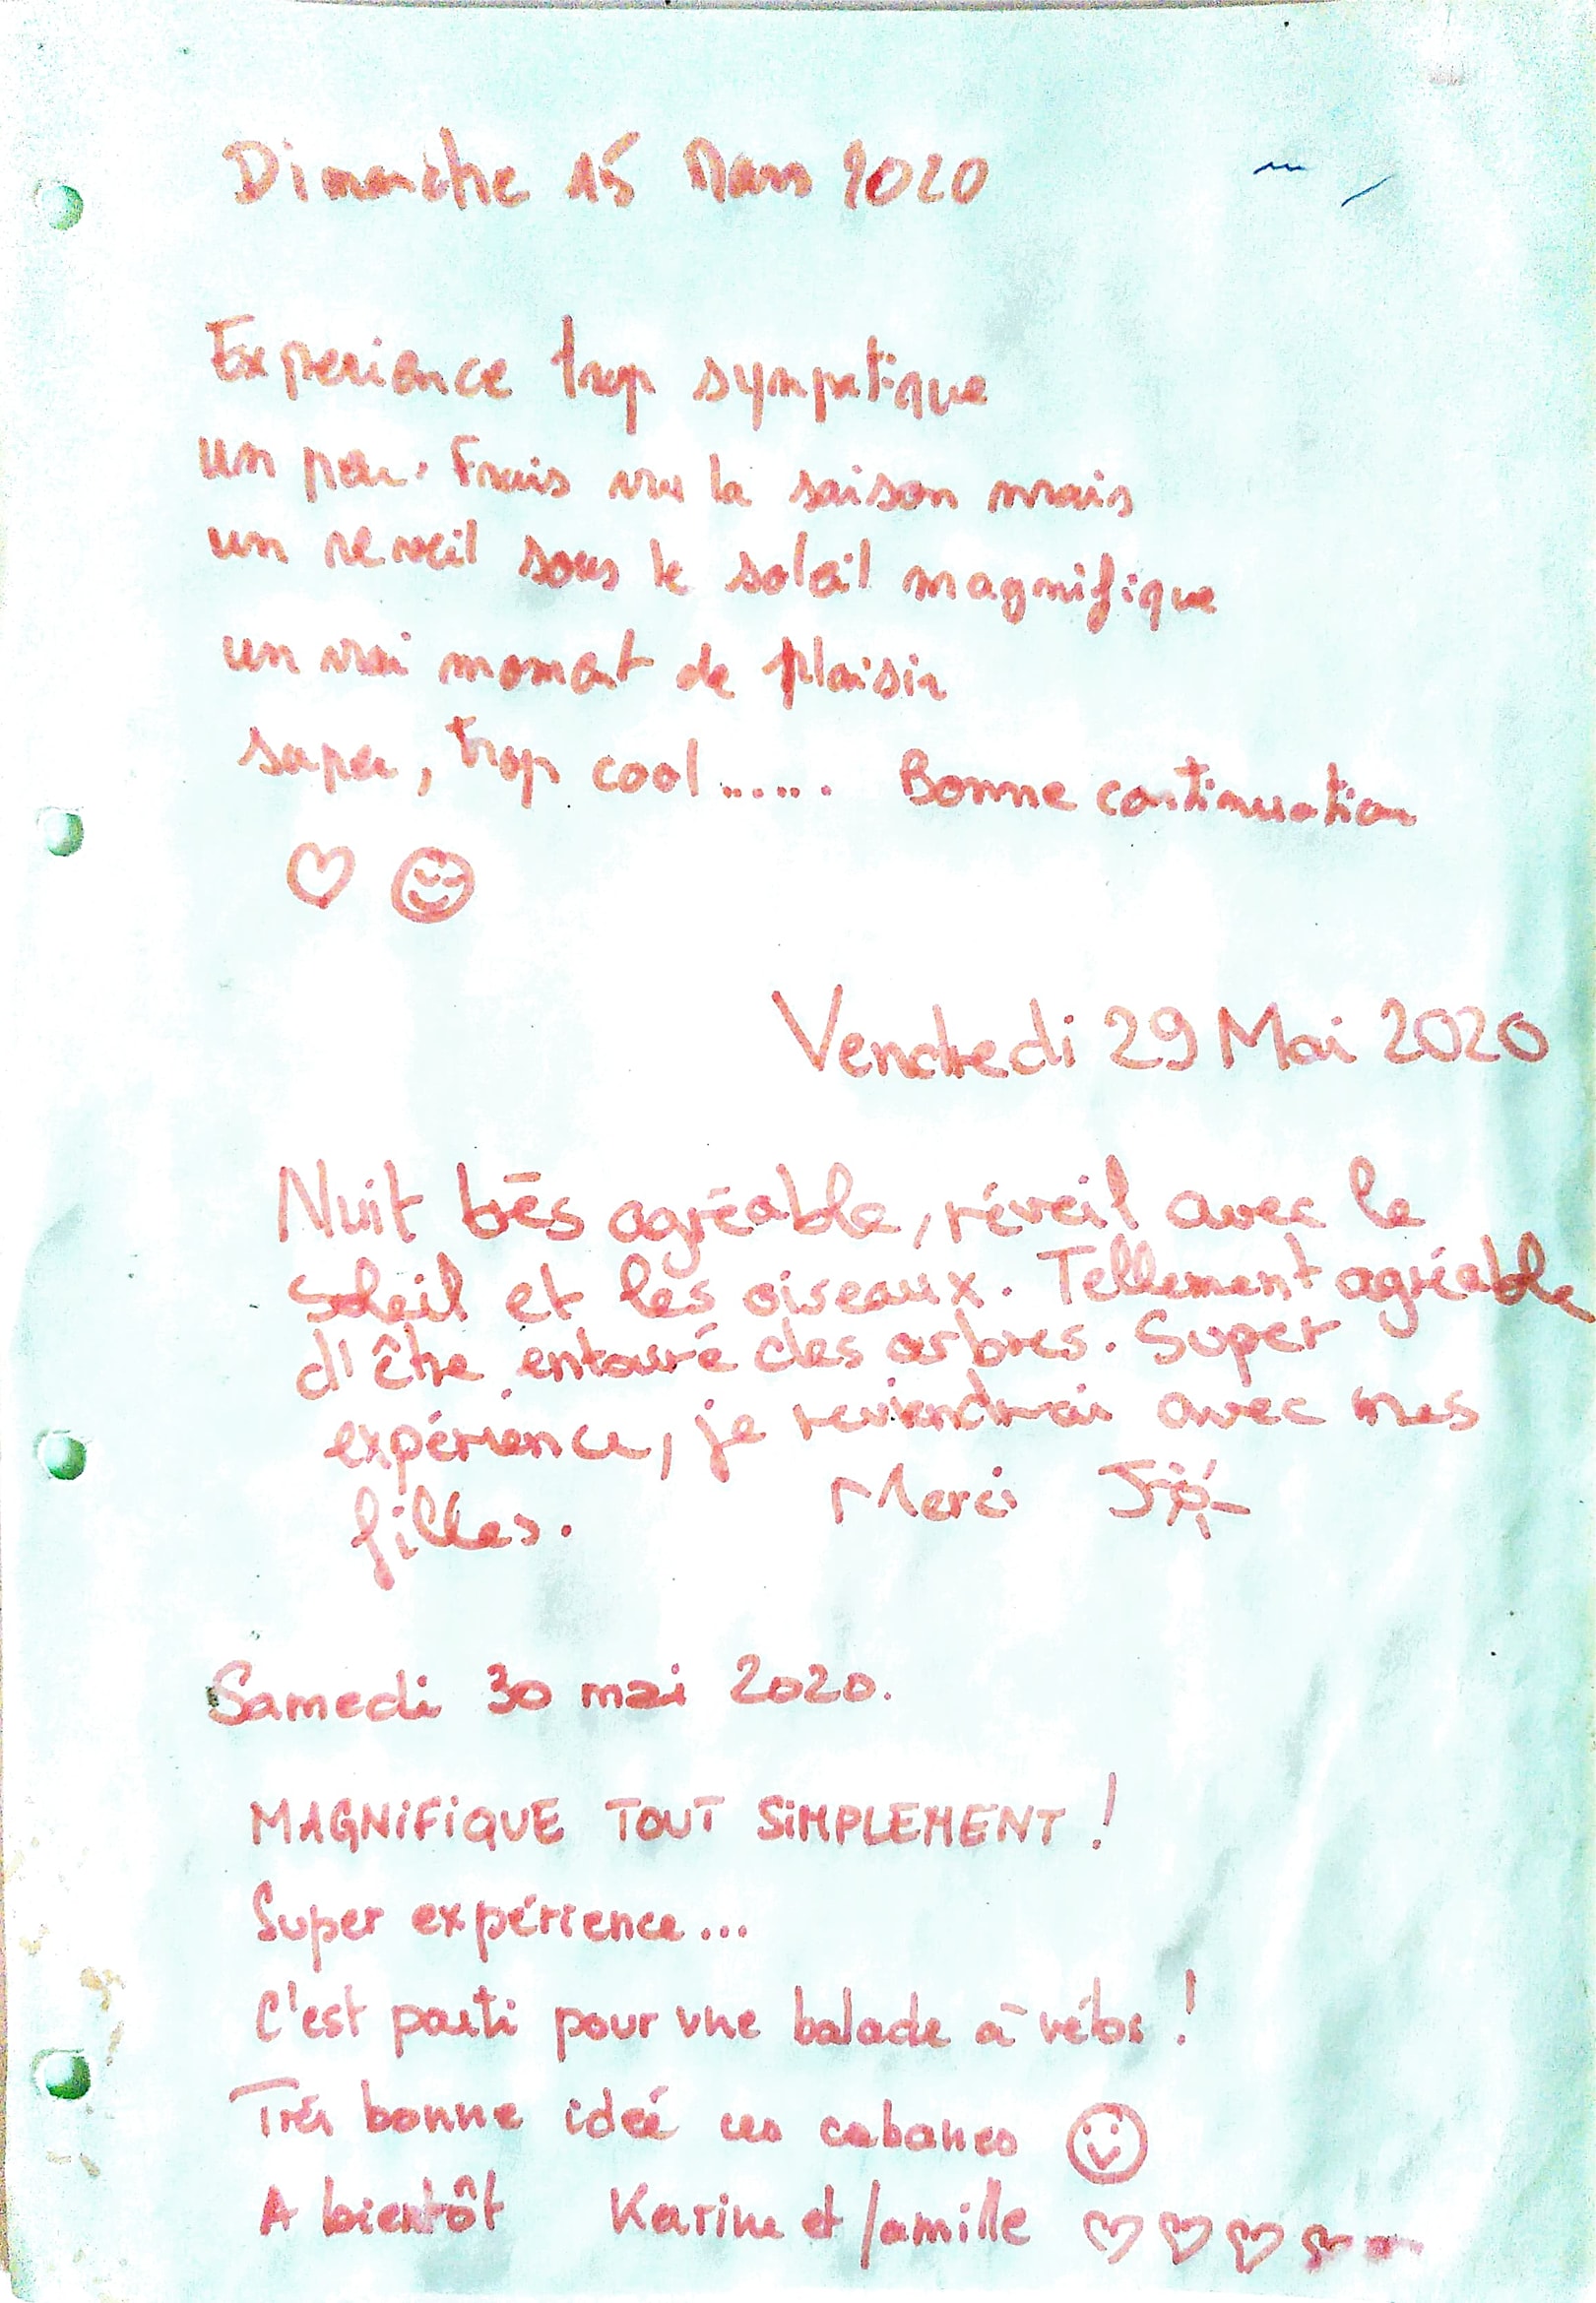 Dimanche 15 Mars 2020
Experience trop sympatique
un peu. Frais vu la saison mais
un reveil sous le soleil magnifique
un vrai moment de plaisir
super, trop cool...... Bonne continuation
Vendredi 29 Mai 2020
Nuit très agréable, réveil avec le
soleil et les oiseaux. Tellement agréable
d'être entouré des arbres. Super
expérience, je reviendrai avec mes
filles. Merci
Samedi 30 mai 2020.
MAGNiFiQUE TOUT SiMPLEMENT !
Super expérience...
C'est parti pour une balade à vélos !
Très bonne ideé ces cabanes
A bientôt Karine et famille